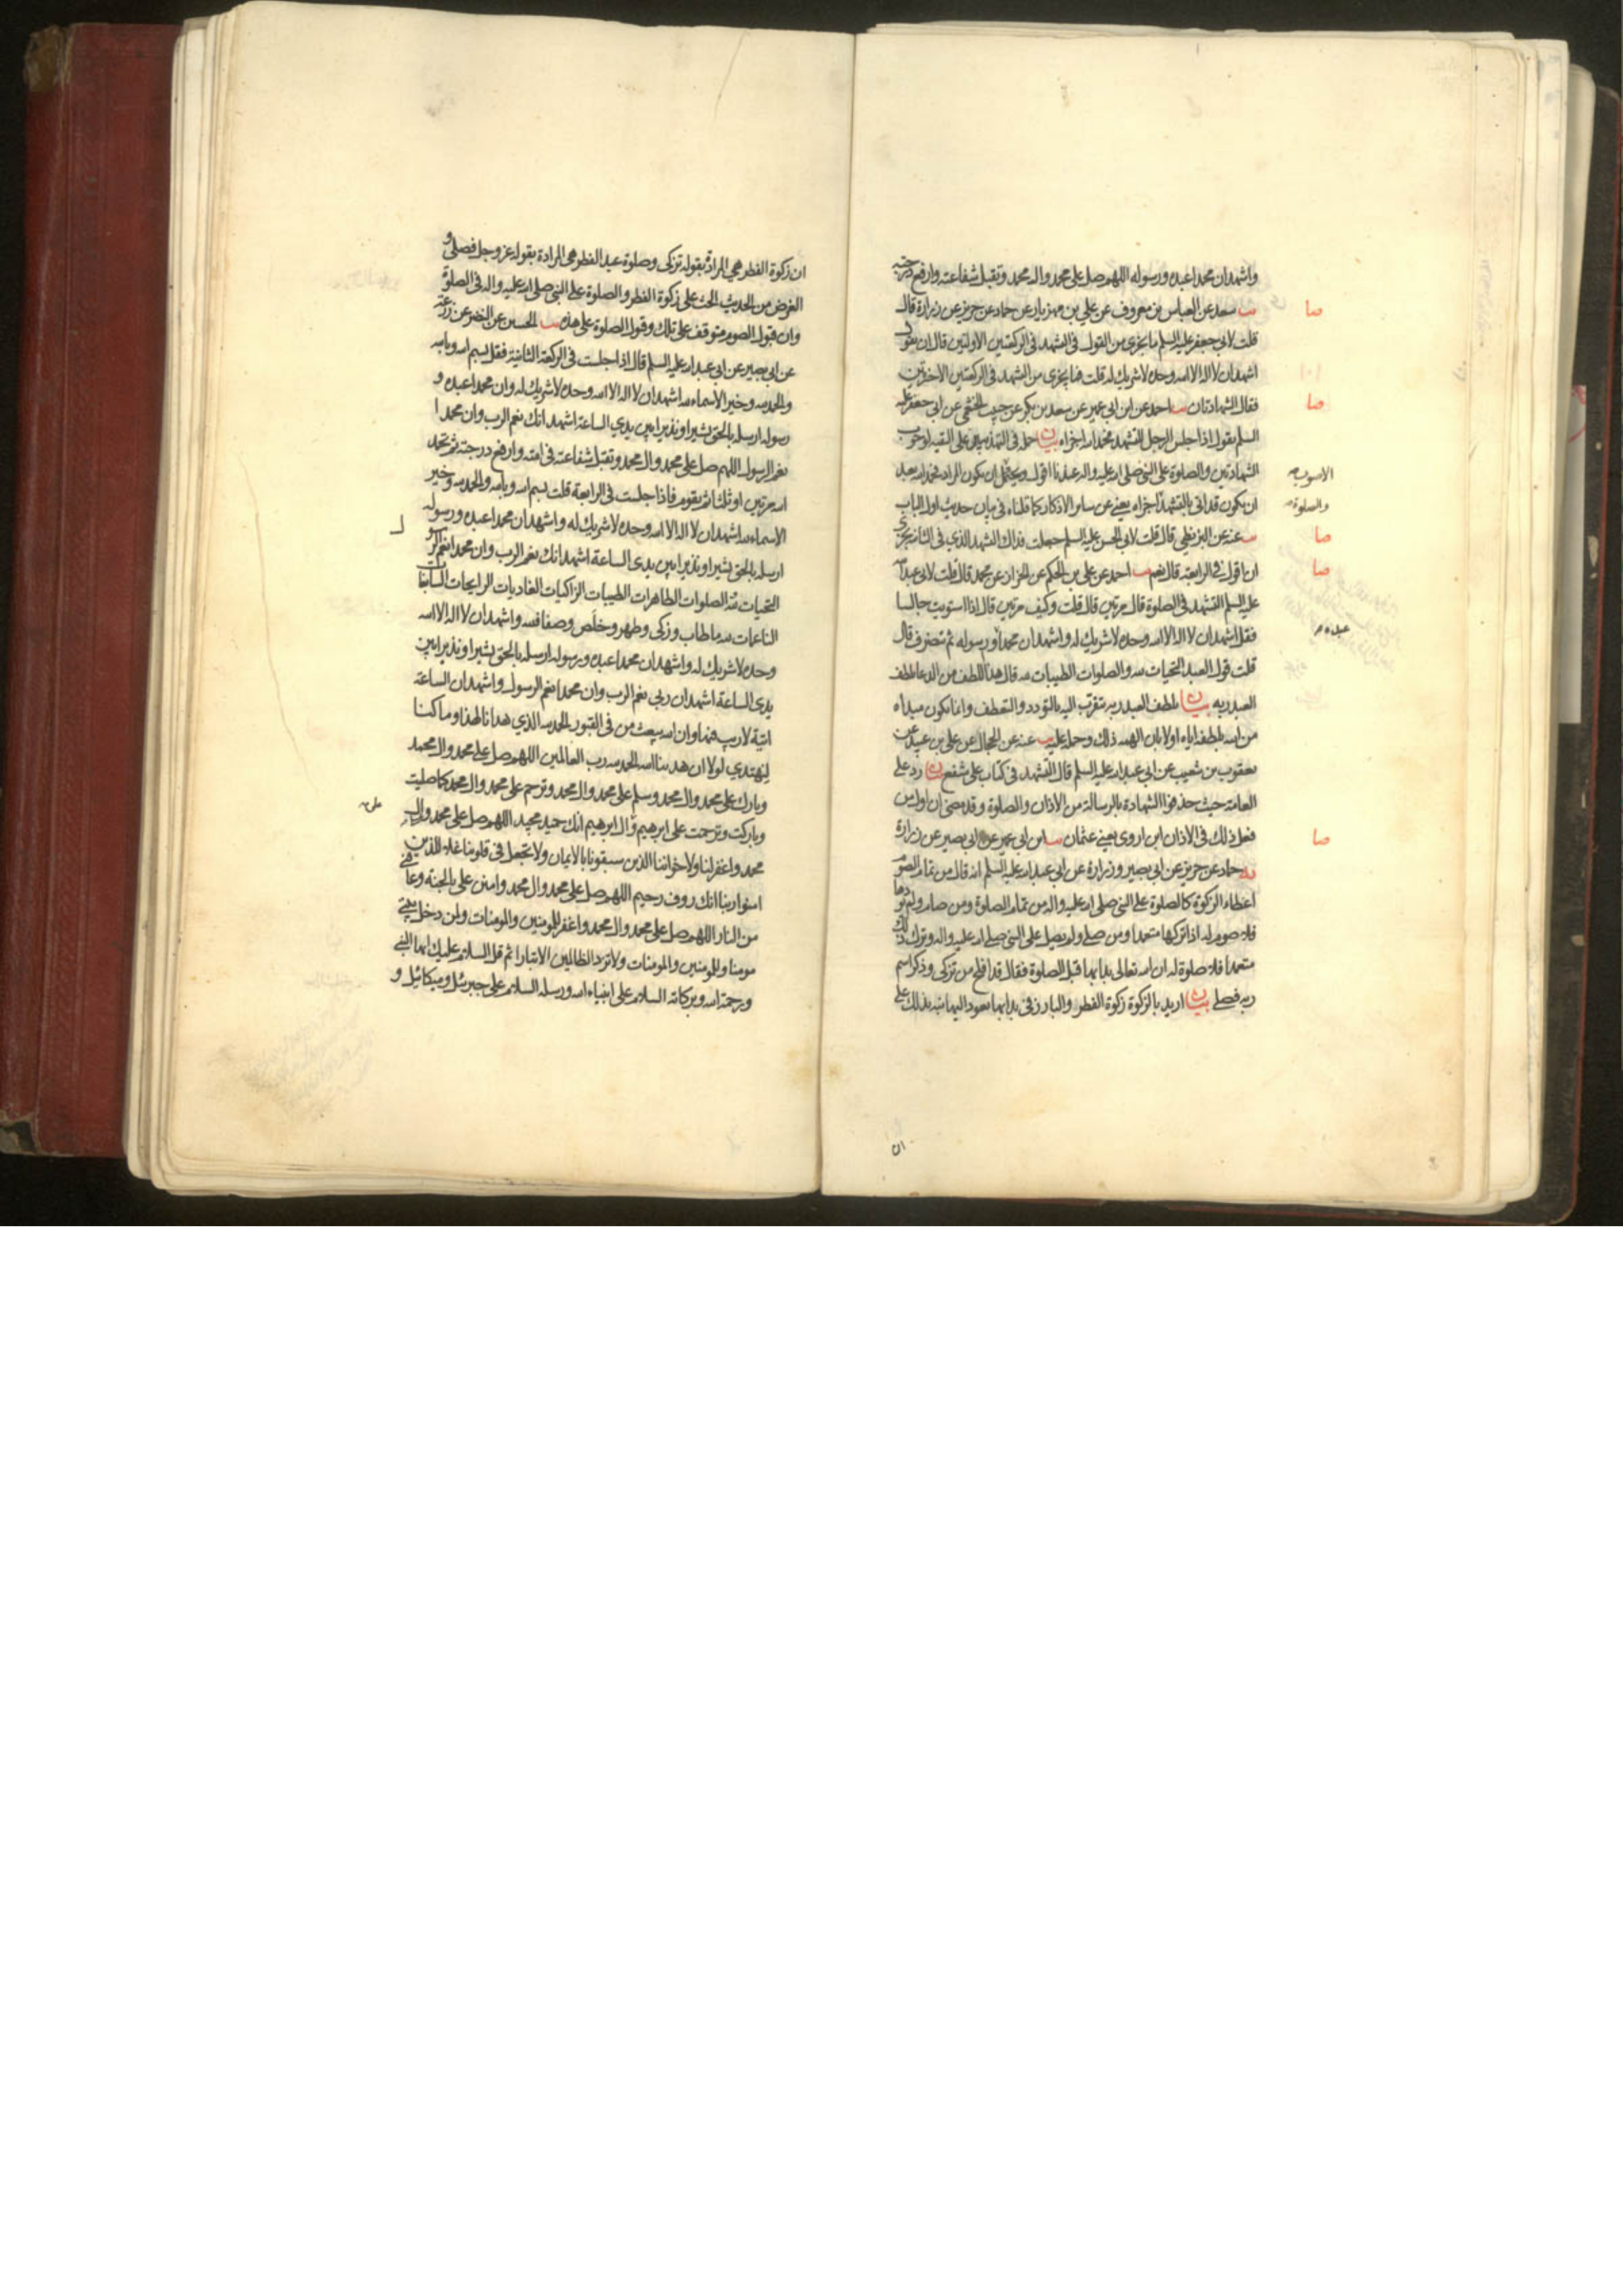 واشهدان محمدا عبده ورسوله اللهم صل على محمد وال محمد وتقبل شفاعته وارفع درجته
صا
يب سعد عن العباس بن معروف عن علي بن مهزيار عن حماد عن حريز عن زرارة قال
قلت لابي جعفر عليه السلم ما يجزي من القول في التشهد في الركعتين الاولتين قال ان يقول
اشهدان لا اله الا الله وحده لا شريك له قلت فما يجزي من التشهد في الركعتين الاخيرتين
صا
فقال الشهادتان يب احمد عن ابن ابي عمير عن سعد بن بكر عن حبيب الخثعمي عن ابي جعفر عليه
السلم يقول اذا جلس الرجل للتشهد فحمد الله اجزاه بيان حمله في التهذيبين على التقيه لوجوب
الشهادتين والصلوة على النبي صلى الله عليه واله عندنا اقول ويحتمل ان يكون المراد فحمد الله بعد
ان يكون قد اتى بالتشهد اجزاه يعني عن ساير الاذكار كما قلناه في بيان حديث اول الباب
والصلوة
صا
يب عنه عن البزنطي قال قلت لابي الحسن عليه السلم جعلت فداك التشهد الذي في الثانية يجزي
صا
ان اقول في الرابعة قال نعم يب احمد عن علي بن الحكم عن الخزاز عن محمد قال قلت لابي عبد الله
عليه السلم التشهد في الصلوة قال مرتين قال قلت وكيف مرتين قال اذا استويت جالسا
فقل اشهدان لا اله الا الله وحده لا شريك له واشهدان محمدا ورسوله ثم تنصرف قال
عبده
قلت قول العبد التحيات لله والصلوات الطيبات لله قال هذا اللطف من الدعا يلطف
العبد ربه بيان يلطف العبد ربه يتقرب اليه بالتودد والتعطف وانما يكون مبداه
من الله بلطفه اياه اولا بان الهمه ذلك وحمله عليه يب عنه عن الحجال عن علي بن عبيد عن
يعقوب بن شعيب عن ابي عبد الله عليه السلم قال التشهد في كتاب علي شفع بيان رد على
العامة حيث حذفوا الشهادة بالرسالة من الاذان والصلوة وقد مضى ان اول من
صا
فعل ذلك في الاذان ابن اروى يعني عثمان يب ابن ابي عمير عن ابي بصير عن زرارة
يه حماد عن حريز عن ابي بصير وزرارة عن ابي عبد الله عليه السلم انه قال من تمام الصوم
اعطاء الزكوة كالصلوة على النبي صلى الله عليه واله من تمام الصلوة ومن صام ولم يودها
فلا صوم له اذا تركها متعمدا ومن صلى ولم يصل على النبي صلى الله عليه واله وترك ذلك
متعمدا فلا صلوة له ان الله تعالى بدا بها قبل الصلوة فقال قد افلح من تزكى وذكر اسم
ربه فصلى بيان اريد بالزكوة زكوة الفطر والبارز في بدا بها يعود اليها نبه بذلك على
ان
ان زكوة الفطر هي المرادة بقوله تزكى وصلوة عيد الفطر هي المرادة بقوله عز وجل فصلى و
الغرض من الحديث الحث على زكوة الفطر والصلوة على النبي صلى الله عليه واله في الصلوة
وان قبول الصوم متوقف على تلك وقبول الصلوة على هذه يب الحسين عن النضر عن زرعة
عن ابي بصير عن ابي عبد الله عليه السلم قال اذا جلست في الركعة الثانية فقل بسم الله وبالله
والحمد لله وخير الاسماء لله اشهدان لا اله الا الله وحده لا شريك له وان محمدا عبده و
رسوله ارسله بالحق بشيرا ونذيرا بين يدي الساعة اشهد انك نعم الرب وان محمدا
نعم الرسول اللهم صل على محمد وال محمد وتقبل شفاعته في امته وارفع درجته ثم تحمد
الله مرتين او ثلثا ثم تقوم فاذا جلست في الرابعة قلت بسم الله وبالله والحمد لله وخير
الاسماء لله اشهدان لا اله الا الله وحده لا شريك له واشهدان محمدا عبده ورسوله
ارسله بالحق بشيرا ونذيرا بين يدي الساعة اشهد انك نعم الرب وان محمدا نعم الرسول
التحيات لله الصلوات الطاهرات الطيبات الزاكيات الغاديات الرايحات السابغات
الناعمات لله ما طاب وزكى وطهر وخلص وصفا فلله واشهدان لا اله الا الله
وحده لا شريك له واشهدان محمدا عبده ورسوله ارسله بالحق بشيرا ونذيرا بين
يدي الساعة اشهدان ربي نعم الرب وان محمدا نعم الرسول واشهدان الساعة
اتية لا ريب فيها وان الله يبعث من في القبور الحمد لله الذي هدانا لهذا وما كنا
لنهتدي لولا ان هدينا الله الحمد لله رب العالمين اللهم صل على محمد وال محمد
وبارك على محمد وال محمد وسلم على محمد وال محمد وترحم على محمد وال محمد كما صليت
وباركت وترحمت على ابرهيم وال ابرهيم انك حميد مجيد اللهم صل على محمد وال
محمد واغفر لنا ولاخواننا الذين سبقونا بالايمان ولا تجعل في قلوبنا غلا للذين
امنوا ربنا انك روف رحيم اللهم صل على محمد وال محمد وامنن علي بالجنة وعافني
من النار اللهم صل على محمد وال محمد واغفر للمومنين والمومنات ولمن دخل بيتي
مومنا وللمومنين والمومنات ولا تزد الظالمين الا تبارا ثم قل السلام عليك ايها النبي
ورحمة الله وبركاته السلام على انبياء الله ورسله السلام على جبرئيل وميكائيل و